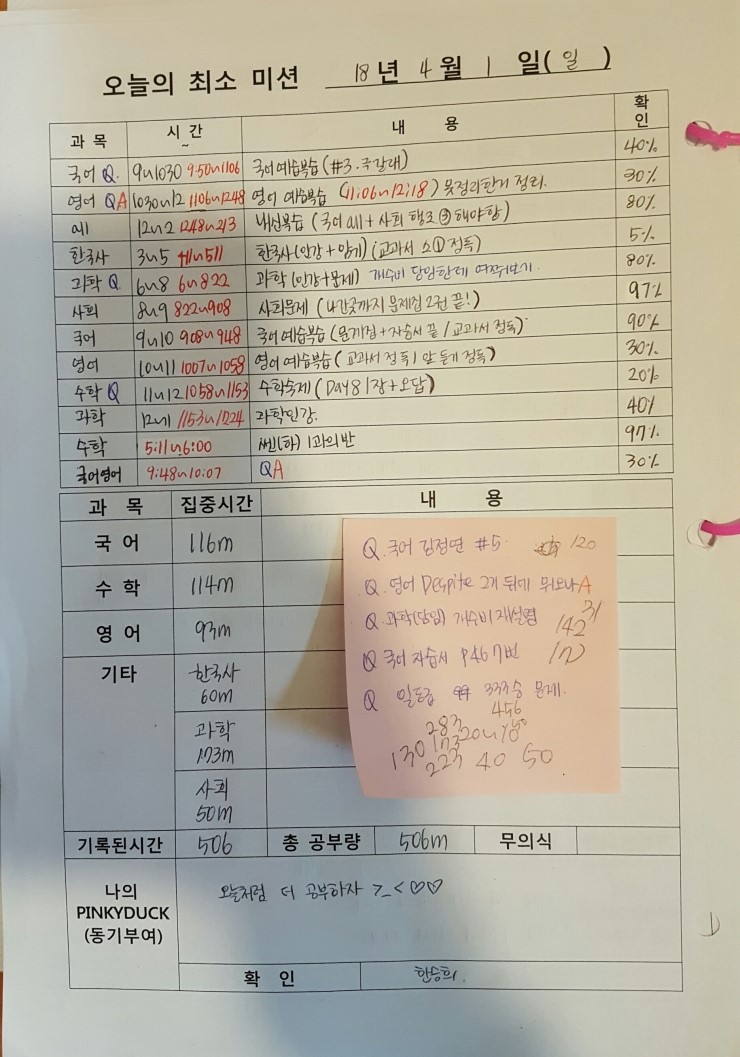 오늘의 최소 미션 18년 4월 1일(일)
과목 시간 ~ 내용 확인
국어 Q 9~1030 9:50~1106 국어예습복습(#3. 40%
영어 QA 1030~12 1106~1248 영어 예습복습 (11:06~12:18) 못정리한거 정리. 30%
all 12~2 1248~213 내신복습 (국어 all + 사회 80%
한국사 3~5 한국사(인강+암기)(교과서 소① 정독) 5%
과학 Q 6~8 6~822 과학(인강+문제) 개수비 담임한테 여쭤보기. 80%
사회 8~9 822~908 사회문제 (나간곳까지 문제집 2권 끝!) 97%
국어 9~10 908~948 국어예습복습 (문제집+자습서 끝 / 교과서 정독) 90%
영어 10~11 1007~1058 영어예습복습 (교과서 정독 / 정독) 30%
수학 Q 11~12 1058~1153 수학숙제 (Day8 1장+오답) 20%
과학 12~1 1153~1224 과학인강. 40%
수학 5:11~6:00 쎈(하) 1과의반 97%
국어영어 9:48~10:07 QA 30%
과목 집중시간 내용
국어 116m
수학 114m
영어 93m
기타 한국사
60m
과학
173m
사회
50m
Q. 국어 김정연 #5. 120
Q. 영어 Despite 2개 뒤에 뭐오나 A
Q. 과학(담임) 개수비 재설명 142 31
Q 국어 자습서 P46 7번
Q 문제.
456
283
130 173
223 40 50
기록된시간 506 총 공부량 506m 무의식
나의
PINKYDUCK
(동기부여)
오늘처럼 더 공부하자 >_< ♡♡
확인 한승희.